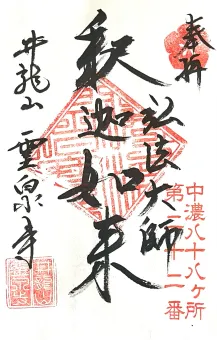 奉拝
中濃八十八ヶ所
第二十二番
弘法大師
釈迦如来
井龍山 霊泉寺